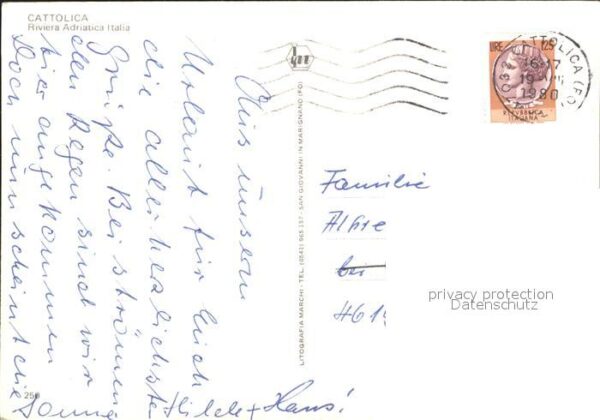 CATTOLICA
Riviera Adriatica Italia
Aus unserm
Urlaub für Euch
die allerherzlichsten
Grüße. Bei strömen
den Regen sind wir
hier angekommen
Doch nun scheint die
Sonne
Hilde + Hans!
256
LITOGRAFIA MARCHI - TEL. (0541) 965.257 - SAN GIOVANNI IN MARIGNANO (FO)
LIRE 125
CATTOLICA (FO)
16-17
19
1980
REPUBBLICA
ITALIANA
Familie
bei
4619
privacy protection
Datenschutz